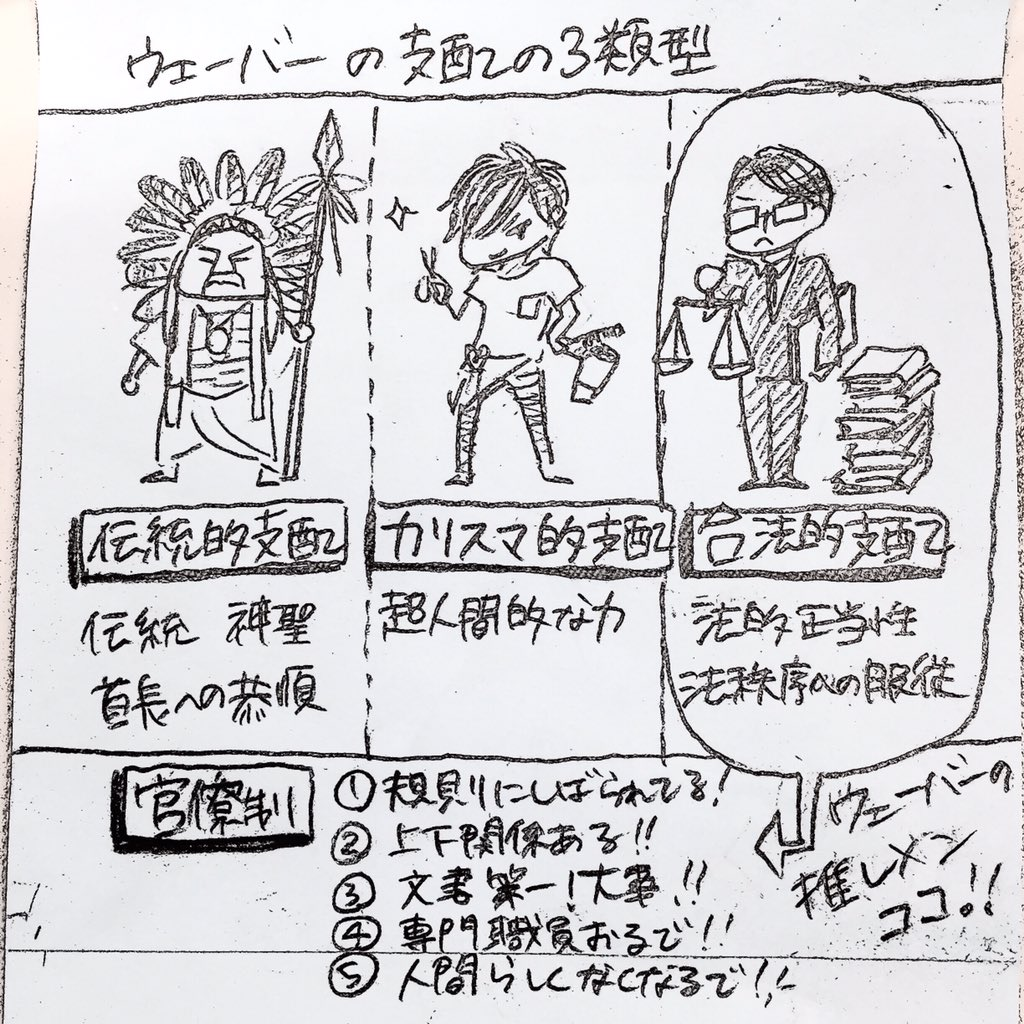 ウェーバーの支配の3類型
伝統的支配
伝統 神聖
首長への恭順
カリスマ的支配
超人間的な力
合法的支配
法的正当性
法秩序への服従
官僚制
① 規則にしばられてる!
② 上下関係ある!!
③ 文書第一!大事!!
④ 専門職員おるで!!
⑤ 人間らしくなくなるで!!
ウェーバーの
推しメン
ココ!!